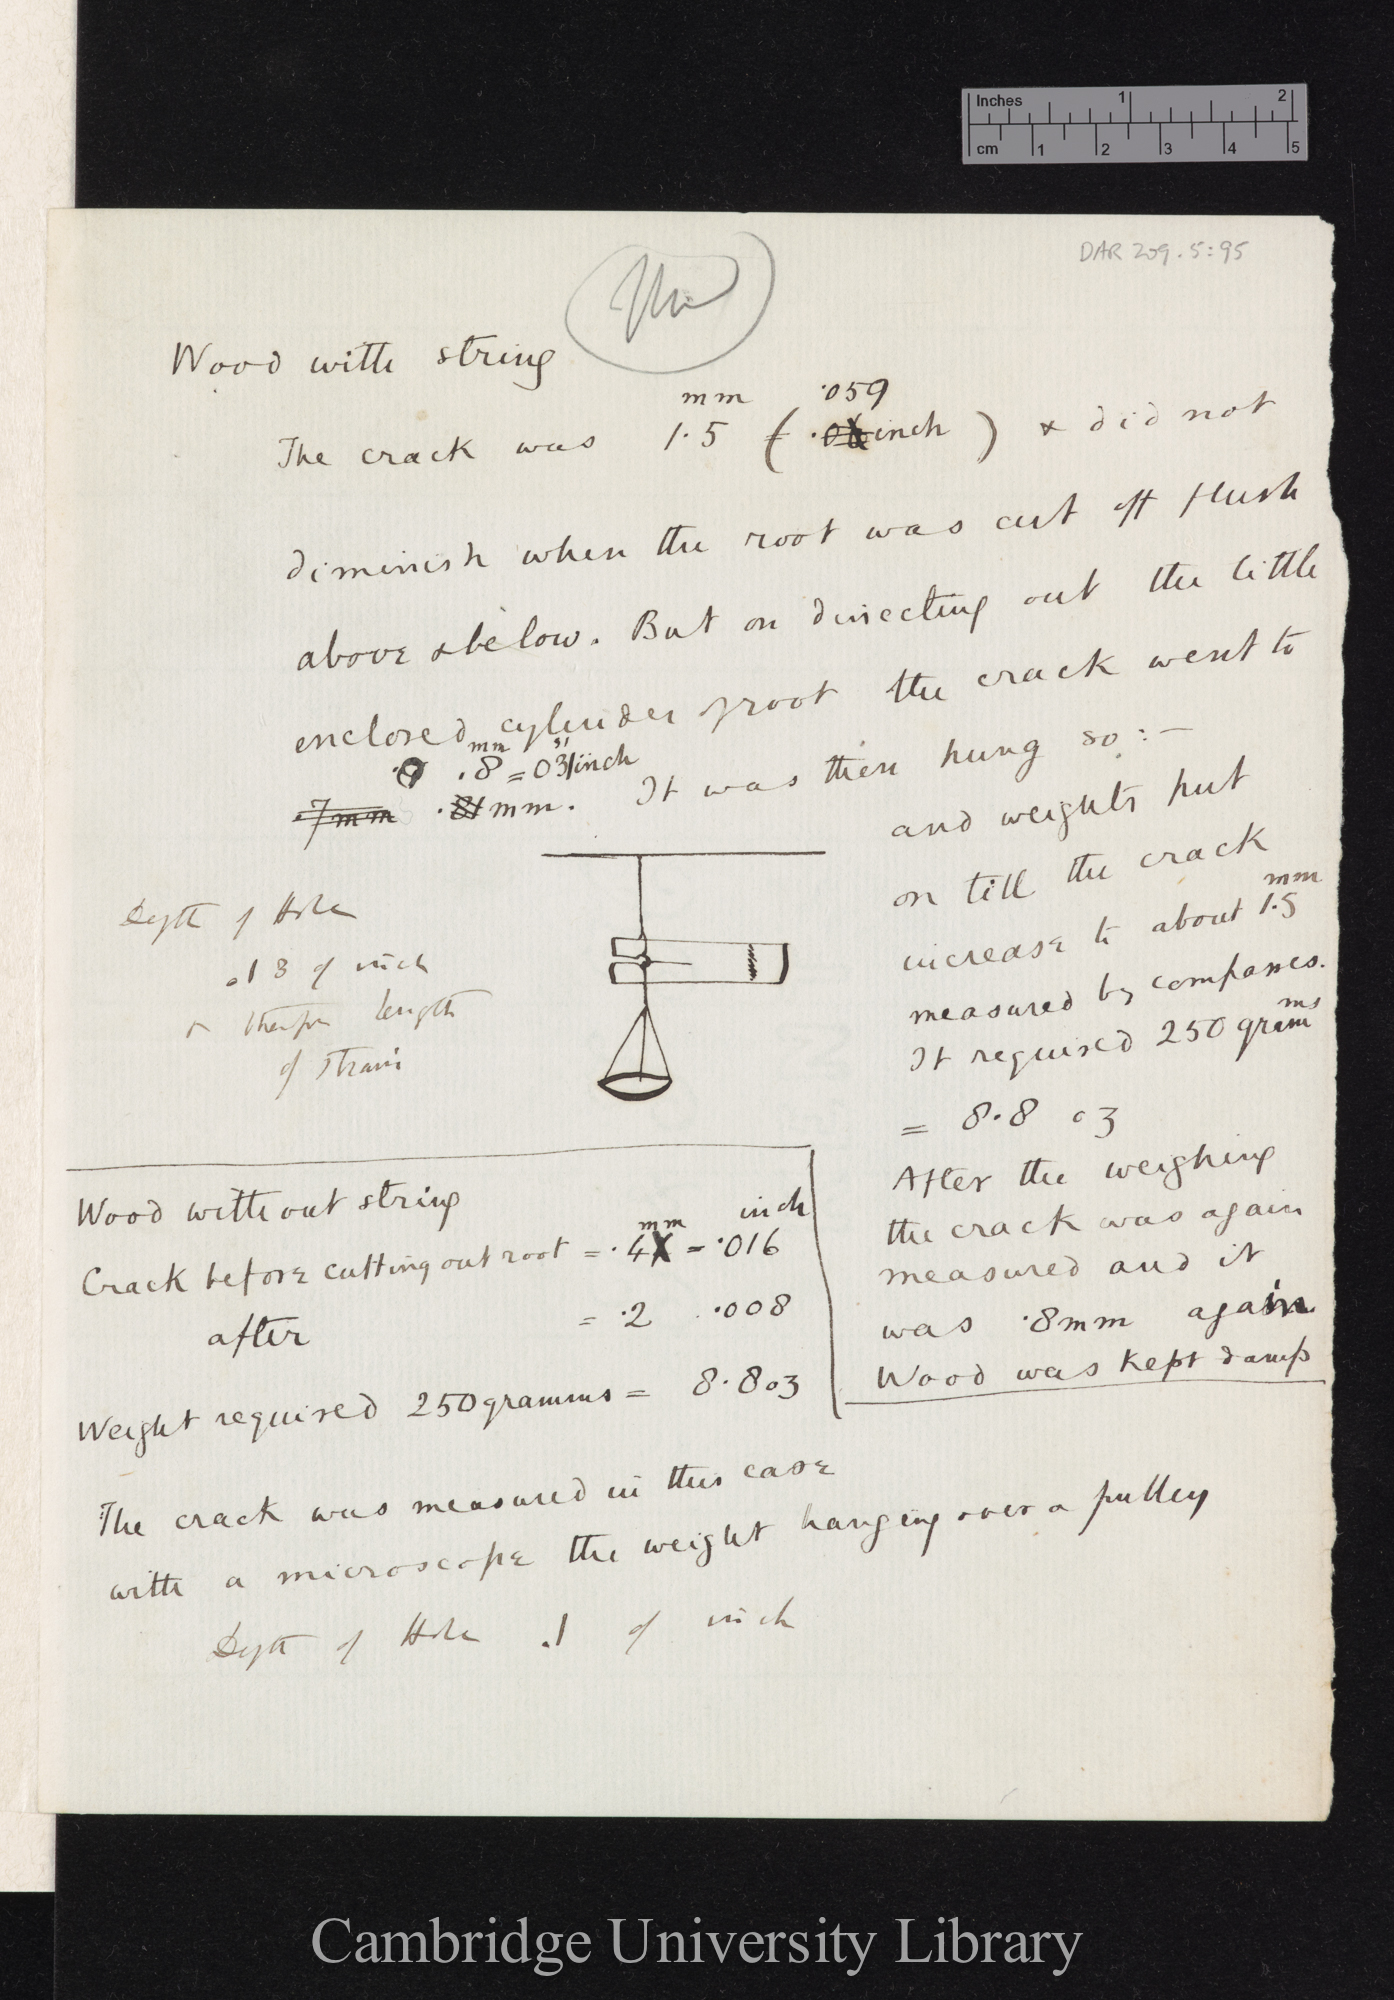 Inches 1 2
cm 1 2 3 4 5
DAR 209.5:95
Wood with string
mm ·059
The crack was 1·5 (= ·06 inch) & did not
diminish when the root was cut off flush
above & below. But on dissecting out the little
enclosed cylinder of root the crack went to
mm
.8 = 031 inch
.7mm .81 mm. It was then hung so:—
and weights put
on till the crack
mm
increase to about 1.5
measured by compasses.
ms
It required 250 gram
= 8·8 oz
After the weighing
the crack was again
measured and it
was ·8mm again
Wood was kept damp
Depth of Hole
.13 of inch
& therefore length
of strain
Wood without string
mm inch
Crack before cutting out root = ·4 = ·016
after = ·2 ·008
Weight required 250 gramms = 8·8 oz
The crack was measured in this case
with a microscope the weight hanging over a pulley
Depth of Hole .1 of inch
Cambridge University Library